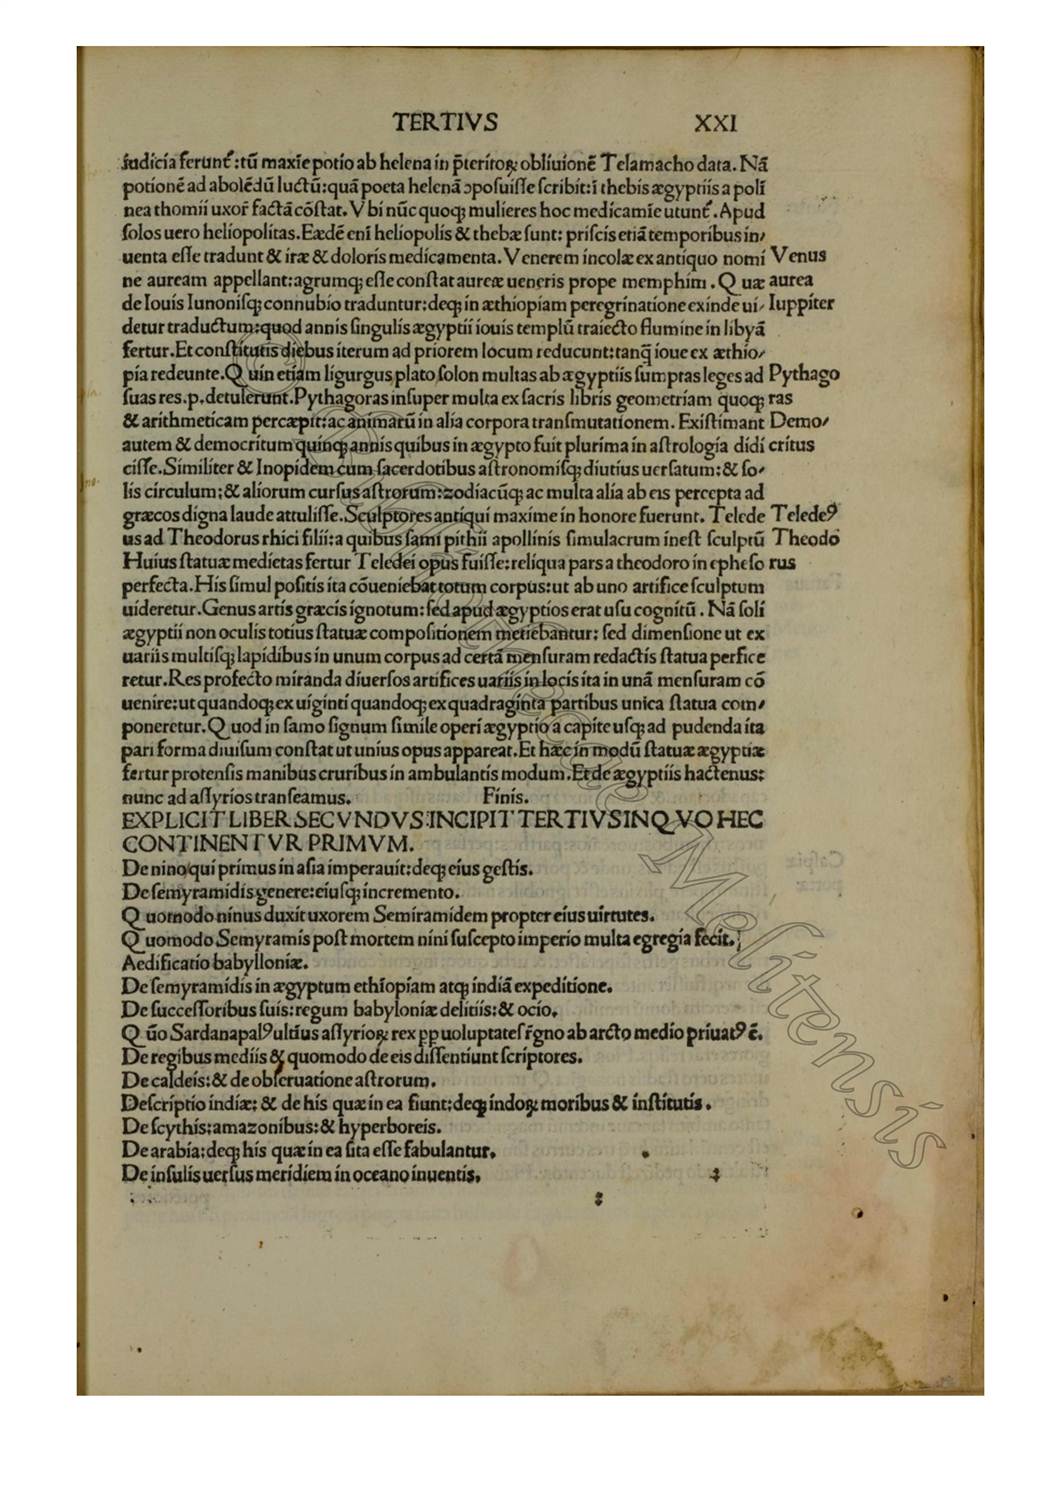 TERTIVS XXI
iudicia ferunt᷑:tū maxīe potio ab helena in p̄teritoꝝ obliuionē Telamacho data.Nā
potionē ad abolēdū luctū:quā poeta helenā ꝯposuiſſe ſcribit:ī thebis ægyptiis a poli
nea thomii uxor᷑ factā cōſtat.Vbi nūc quoqꝫ mulieres hoc medicamīe utunt᷑.Apud
ſolos uero heliopolitas.Eædē eni heliopolis & thebæ ſunt: priſcis etiā temporibus in/
uenta eſſe tradunt & iræ & doloris medicamenta.Venerem incolæ ex antiquo nomi Venus
ne auream appellant:agrumqꝫ eſſe conſtat aureæ ueneris prope memphim.Quæ aurea
de Iouis Iunoniſqꝫ connubio traduntur:deqꝫ in æthiopiam peregrinatione exinde ui/ Iuppiter
detur traductum:quod annis ſingulis ægyptii iouis templū traiecto flumine in libyā
fertur.Et conſtitutis diebus iterum ad priorem locum reducunt:tanq̄ ioue ex æthio/
pia redeunte.Quin etiam ligurgus plato ſolon multas ab ægyptiis ſumptas leges ad Pythago
ſuas res.p.detulerunt.Pythagoras inſuper multa ex ſacris libris geometriam quoqꝫ ras
& arithmeticam percæpit:ac animarū in alia corpora tranſmutationem. Exiſtimant Demo/
autem & democritum quinqꝫ annis quibus in ægypto fuit plurima in aſtrologia didi critus
ciſſe.Similiter & Inopidem cum ſacerdotibus aſtronomiſqꝫ diutius uerſatum:& ſo/
lis circulum;& aliorum curſus aſtrorum:zodiacūqꝫ ac multa alia ab eis percepta ad
græcos digna laude attuliſſe.Sculptores antiqui maxime in honore fuerunt. Telede Teledeꝰ
us ad Theodorus rhici filii:a quibus ſami pithii apollinis ſimulacrum ineſt ſculptū Theodo
Huius ſtatuæ medietas fertur Teledei opus fuiſſe:reliqua pars a theodoro in epheſo rus
perfecta.His ſimul poſitis ita cōueniebat totum corpus:ut ab uno artifice ſculptum
uideretur.Genus artis græcis ignotum:ſed apud ægyptios erat uſu cognitū. Nā ſoli
ægyptii non oculis totius ſtatuæ compoſitionem metiebantur: ſed dimenſione ut ex
uariis multiſqꝫ lapidibus in unum corpus ad certā menſuram redactis ſtatua perfice
retur.Res profecto miranda diuerſos artifices uariis in locis ita in unā menſuram cō
uenire:ut quandoqꝫ ex uiginti quandoqꝫ ex quadraginta partibus unica ſtatua com/
poneretur.Quod in ſamo ſignum ſimile operi ægyptio a capite uſqꝫ ad pudenda ita
pari forma diuiſum conſtat ut unius opus appareat.Et hæc in modū ſtatuæ ægyptiæ
fertur protenſis manibus cruribus in ambulantis modum.Et de ægyptiis hactenus:
nunc ad aſſyrios tranſeamus. Finis.
EXPLICIT LIBER SECVNDVS:INCIPIT TERTIVS IN QVO HEC
CONTINENTVR PRIMVM.
De nino qui primus in aſia imperauit:deqꝫ eius geſtis.
De ſemyramidis genere:eiuſqꝫ incremento.
Quomodo ninus duxit uxorem Semiramidem propter eius uirtutes.
Quomodo Semyramis poſt mortem nini ſuſcepto imperio multa egregia fecit.
Aedificatio babylloniæ.
De ſemyramidis in ægyptum ethiopiam atqꝫ indiā expeditione.
De ſucceſſoribus ſuis:regum babyloniæ delitiis:& ocio.
Quō Sardanapalꝰ ultīus aſſyrioꝝ rex ꝓꝑ uoluptateſ r̄gno ab arcto medio priuatꝰ ē.
De regibus mediis & quomodo de eis diſſentiunt ſcriptores.
De caldeis:& de obſeruatione aſtrorum.
Deſcriptio indiæ: & de his quæ in ea fiunt:deqꝫ indoꝝ moribus & inſtitutis.
De ſcythis:amazonibus:& hyperboreis.
De arabia:deqꝫ his quæ in ea ſita eſſe fabulantur.
De inſulis uerſus meridiem in oceano inuentis.
Melitensis